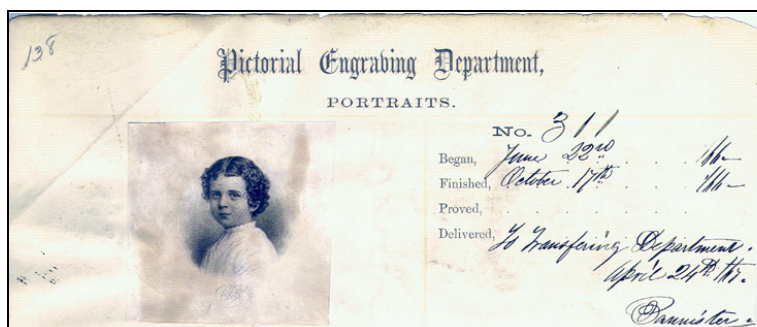 138
Pictorial Engraving Department,
PORTRAITS.
No. 311
Began, June 22nd . . . 1866
Finished, October 17th . . . 1866
Proved, . . . . . . .
Delivered, To Transfering Department.
April 24th 1867.
Bannister.